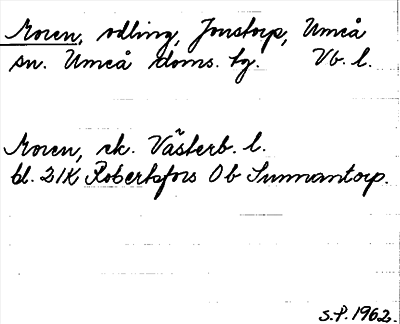 Moren, odling, Jonstorp, Umeå
sn. Umeå doms. tg. Vb. l.
Moren, ek. Västerb. l.
bl. 21K Robertsfors Ob Sunnantorp.
S.P. 1962.